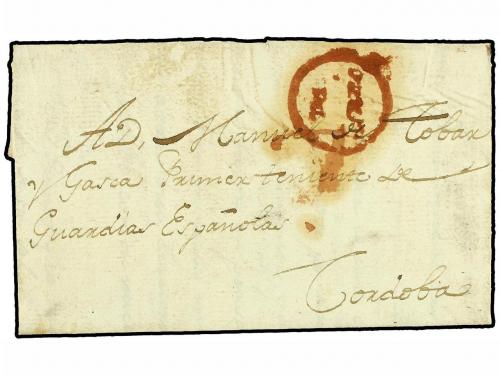 A D. Manuel de Tobar
y Gasca Primer teniente de
Guardias Españolas
Cordoba